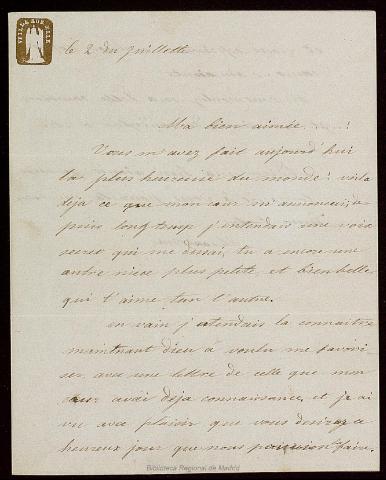 VEILLE SUR ELLE
le 2 du juillette
Ma bien aimée !
Vous m'avez fait aujourd'hui
la plus heureuse du monde! voila
deja ce que mon cœur m'annoncait, de
puis long-temp j'entendais une voix
secret qui me disai, tu a encore une
autre niece plus petite, et bien belle
qui t'aime tan l'autre.
en vain j'atendais la connaitre
maintnant dieu à voulu me favori-
ser avec une lettre de celle que mon
cœur avai déja connaissance, et je ai
vu avec plaisir que vous desirez a
heureux jour que nous faire.
Biblioteca Regional de Madrid